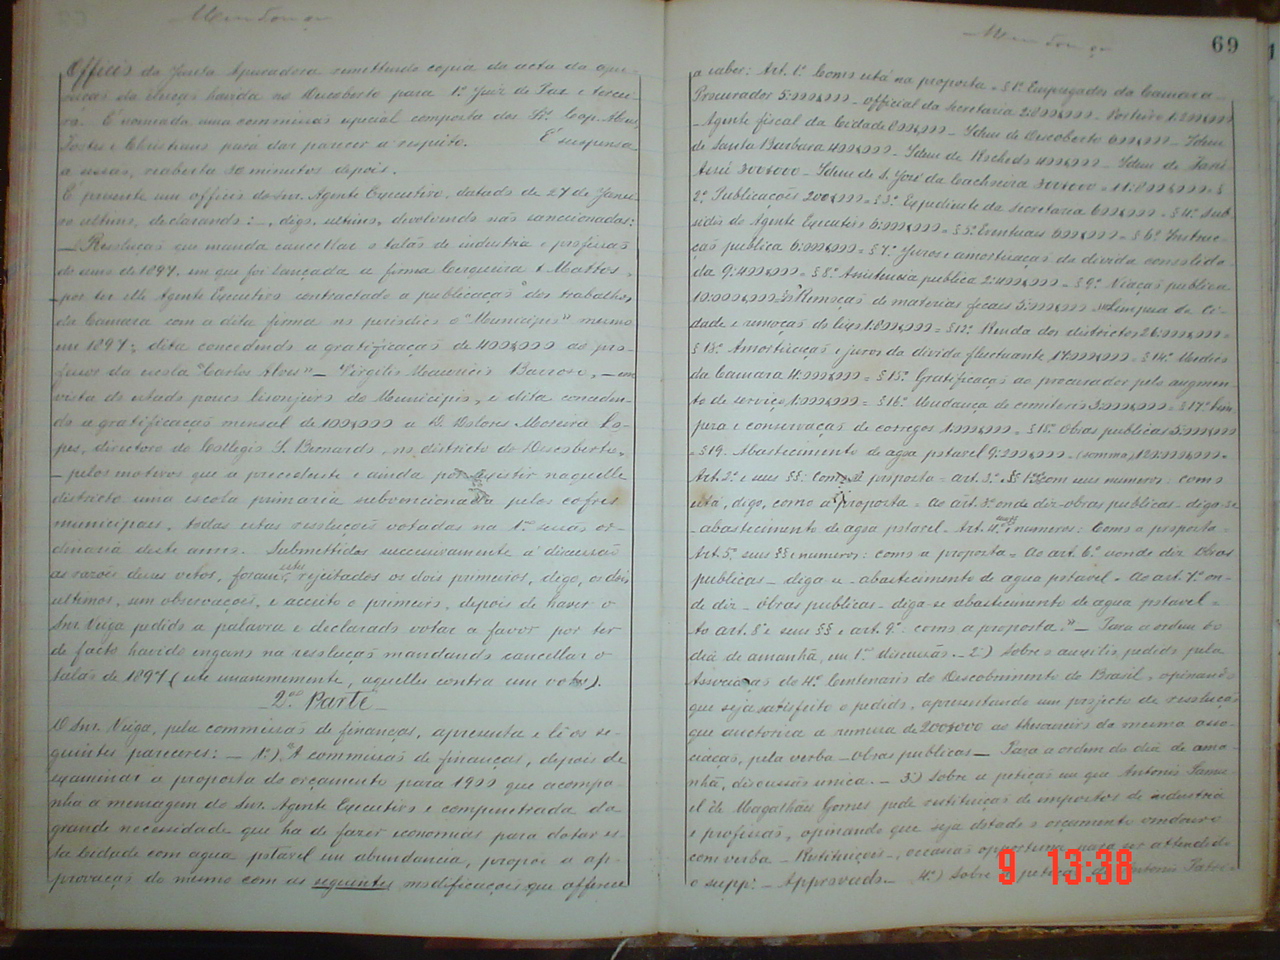 Mendonça
Officio da Junta Apuradora remettendo copia da acta da apu-
ração da eleição havida no Descoberto para 1º Juiz de Paz e tercei-
ro. É nomeada uma commissão especial composta dos Srs. Cap. Mem,
Fortes e Christiano para dar parecer a respeito. É suspensa
a sessão, reaberta 30 minutos depois.
É presente um officio do Snr. Agente Executivo, datado de 27 de Janei-
ro ultimo, declarando: -, digo, ultimo, devolvendo não sanccionadas:
- Resolução que manda cancellar o talão de industria e profissão
do anno de 1897, em que foi lançada a firma Cerqueira & Mattos,
por ter elle Agente Executivo contractado a publicação dos trabalhos
da Camara com a dita firma no periodico o "Municipio" mesmo
em 1897; dita concedendo a gratificação de 400$000 ao pro-
fessor da escola "Carlos Alves" - Virgilio Mauricio Barroso, - em
vista do estado pouco lisonjeiro do Municipio, e dita conceden-
do a gratificação mensal de 100$000 a D. Dolores Moreira Lo-
pes, directora do Collegio S. Bernardo, no districto do Descoberto,
- pelos motivos que a precedente e ainda por existir naquelle
districto uma escola primaria subvencionada pelos cofres
municipaes, todas estas resoluções votadas na 1ª sessão or-
dinaria deste anno. Submettidas successivamente á discussão
as razões desses vetos, foram estes rejeitados os dois primeiros, digo, os dois
ultimos, sem observações, e acceito o primeiro, depois de haver o
Snr. Veiga pedido a palavra e declarado votar a favor por ter
de facto havido engano na resolução mandando cancellar o
talão de 1897 (este unanimemente, aquelles contra um voto).
2ª Parte
O Snr. Veiga, pela commissão de finanças, apresenta e lê os se-
guintes pareceres: - 1º) "A commissão de finanças, depois de
examinar a proposta do orçamento para 1900 que acompa-
nha a mensagem do Snr. Agente Executivo e compenetrada da
grande necessidade que ha de fazer economias para dotar es-
ta Cidade com agua potavel em abundancia, propõe a ap-
provação do mesmo com as seguintes modificações que offerece
Mendonça
69
a saber: Art. 1º Como está na proposta = § 1º Empregados da Camara -
Procurador 5:000$000 - Official da secretaria 2:800$000 - Porteiro 1:200$000
- Agente fiscal da Cidade 800$000 - Idem do Descoberto 600$000 - Idem
de Santa Barbara 400$000 - Idem de Rochedo 400$000 - Idem de Tari
Assú 300$000 - Idem de S. José da Cachoeira 300$000 = 11:800$000 = §
2º Publicações 200$000 = § 3º Expediente da secretaria 600$000 = § 4º Sub-
sidio do Agente Executivo 6:000$000 = § 5º Eventuaes 600$000 = § 6º Instruc-
ção publica 6:000$000 = § 7º Juros e amortização da divida consolida-
da 9:400$000 = § 8º Assistencia publica 2:400$000 = § 9º Viação publica
10:000$000 = § 10º Remoção de materias fecaes 5:000$000 = § 11º Limpeza da Ci-
dade e remoção do lixo 1:800$000 = § 12º Renda dos districtos 26:000$000 =
§ 13º Amortização e juros da divida fluctuante 17:000$000 = § 14º Medico
da Camara 4:000$000 = § 15º Gratificação ao procurador pelo augmen-
to de serviço 1:000$000 = § 16º Mudança de cemiterio 3:000$000 = § 17º Lim-
peza e conservação de corregos 1:000$000 = § 18º Obras publicas 5:000$000
= § 19. Abastecimento de agua potavel 9:200$000 (somma) 120:000$000 =
Art. 2º e seus §§: Como a proposta = art. 3º §§ 1º com seus numeros: como
está, digo, como a proposta = Ao art. 3º onde diz-obras publicas - diga-se
- abastecimento de agua potavel - Art. 4º seus §§ e numeros: Como a proposta -
Art. 5º seus §§ e numeros: como a proposta = Ao art. 6º onde diz Obras
publicas - diga-se - abastecimento de agua potavel = Ao art. 7º on-
de diz - Obras publicas - diga-se abastecimento de agua potavel =
Ao art. 8º e seus §§ e art. 9º: como a proposta." - Para a ordem do
dia de amanhã, em 1ª discussão. - 2º) Sobre o auxilio pedido pela
Associação do 4º Centenario do Descobrimento do Brasil, opinando
que seja satisfeito o pedido, apresentando um projecto de resolução
que auctorisa a remessa de 200$000 ao thesoureiro da mesma asso-
ciação, pela verba - Obras publicas - Para a ordem do dia de ama-
nhã, discussão unica. - 3º) Sobre a petição em que Antonio Samu-
el de Magalhães Gomes pede restituição de impostos de industria
e profissão, opinando que seja dotado o orçamento vindouro
com verba - Restituições -, occasião opportuna para ser attendido
o suppe. - Approvado. - 4º) Sobre a petição de Antonio Patri-
9 13:38